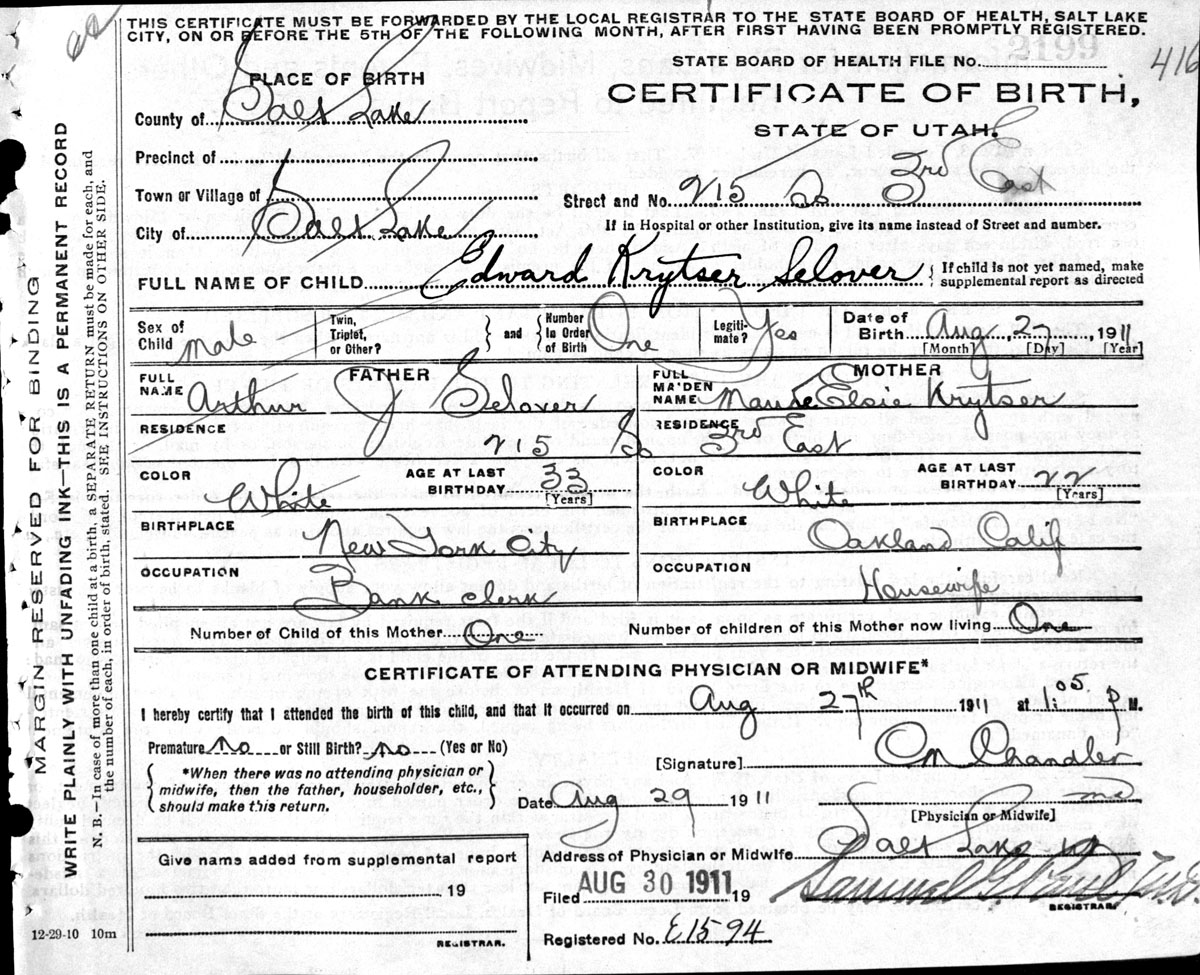 THIS CERTIFICATE MUST BE FORWARDED BY THE LOCAL REGISTRAR TO THE STATE BOARD OF HEALTH, SALT LAKE
CITY, ON OR BEFORE THE 5TH OF THE FOLLOWING MONTH, AFTER FIRST HAVING BEEN PROMPTLY REGISTERED.
STATE BOARD OF HEALTH FILE No. 2199
416
PLACE OF BIRTH
CERTIFICATE OF BIRTH,
STATE OF UTAH.
County of Salt Lake
Precinct of
Town or Village of
Street and No. 215 So 3rd East
City of Salt Lake
If in Hospital or other Institution, give its name instead of Street and number.
FULL NAME OF CHILD Edward Krytser Selover { If child is not yet named, make supplemental report as directed
Sex of Child Male
Twin, Triplet, or Other?
} and { Number in Order of Birth One
Legitimate? Yes
Date of Birth Aug 27 1911
[Month] [Day] [Year]
FATHER
FULL NAME Arthur J Selover
MOTHER
FULL MAIDEN NAME Maude Elsie Krytser
RESIDENCE 215 So
RESIDENCE 3rd East
COLOR White
AGE AT LAST BIRTHDAY 33
[Years]
COLOR White
AGE AT LAST BIRTHDAY 22
[Years]
BIRTHPLACE New York City
BIRTHPLACE Oakland Calif
OCCUPATION Bank clerk
OCCUPATION Housewife
Number of Child of this Mother One
Number of children of this Mother now living One
CERTIFICATE OF ATTENDING PHYSICIAN OR MIDWIFE*
I hereby certify that I attended the birth of this child, and that it occurred on Aug 27th 1911 at 1:05 P M.
Premature No or Still Birth? No (Yes or No)
[Signature] Chandler
{ *When there was no attending physician or
midwife, then the father, householder, etc.,
should make this return. }
Date Aug 29 1911
[Physician or Midwife]
Give name added from supplemental report
Address of Physician or Midwife Salt Lake
19
AUG 30 1911
Filed 19
REGISTRAR.
REGISTRAR.
Registered No. E1594
12-29-10 10m
MARGIN RESERVED FOR BINDING
WRITE PLAINLY WITH UNFADING INK—THIS IS A PERMANENT RECORD
N. B.—In case of more than one child at a birth, a SEPARATE RETURN must be made for each, and
the number of each, in order of birth, stated. SEE INSTRUCTIONS ON OTHER SIDE.